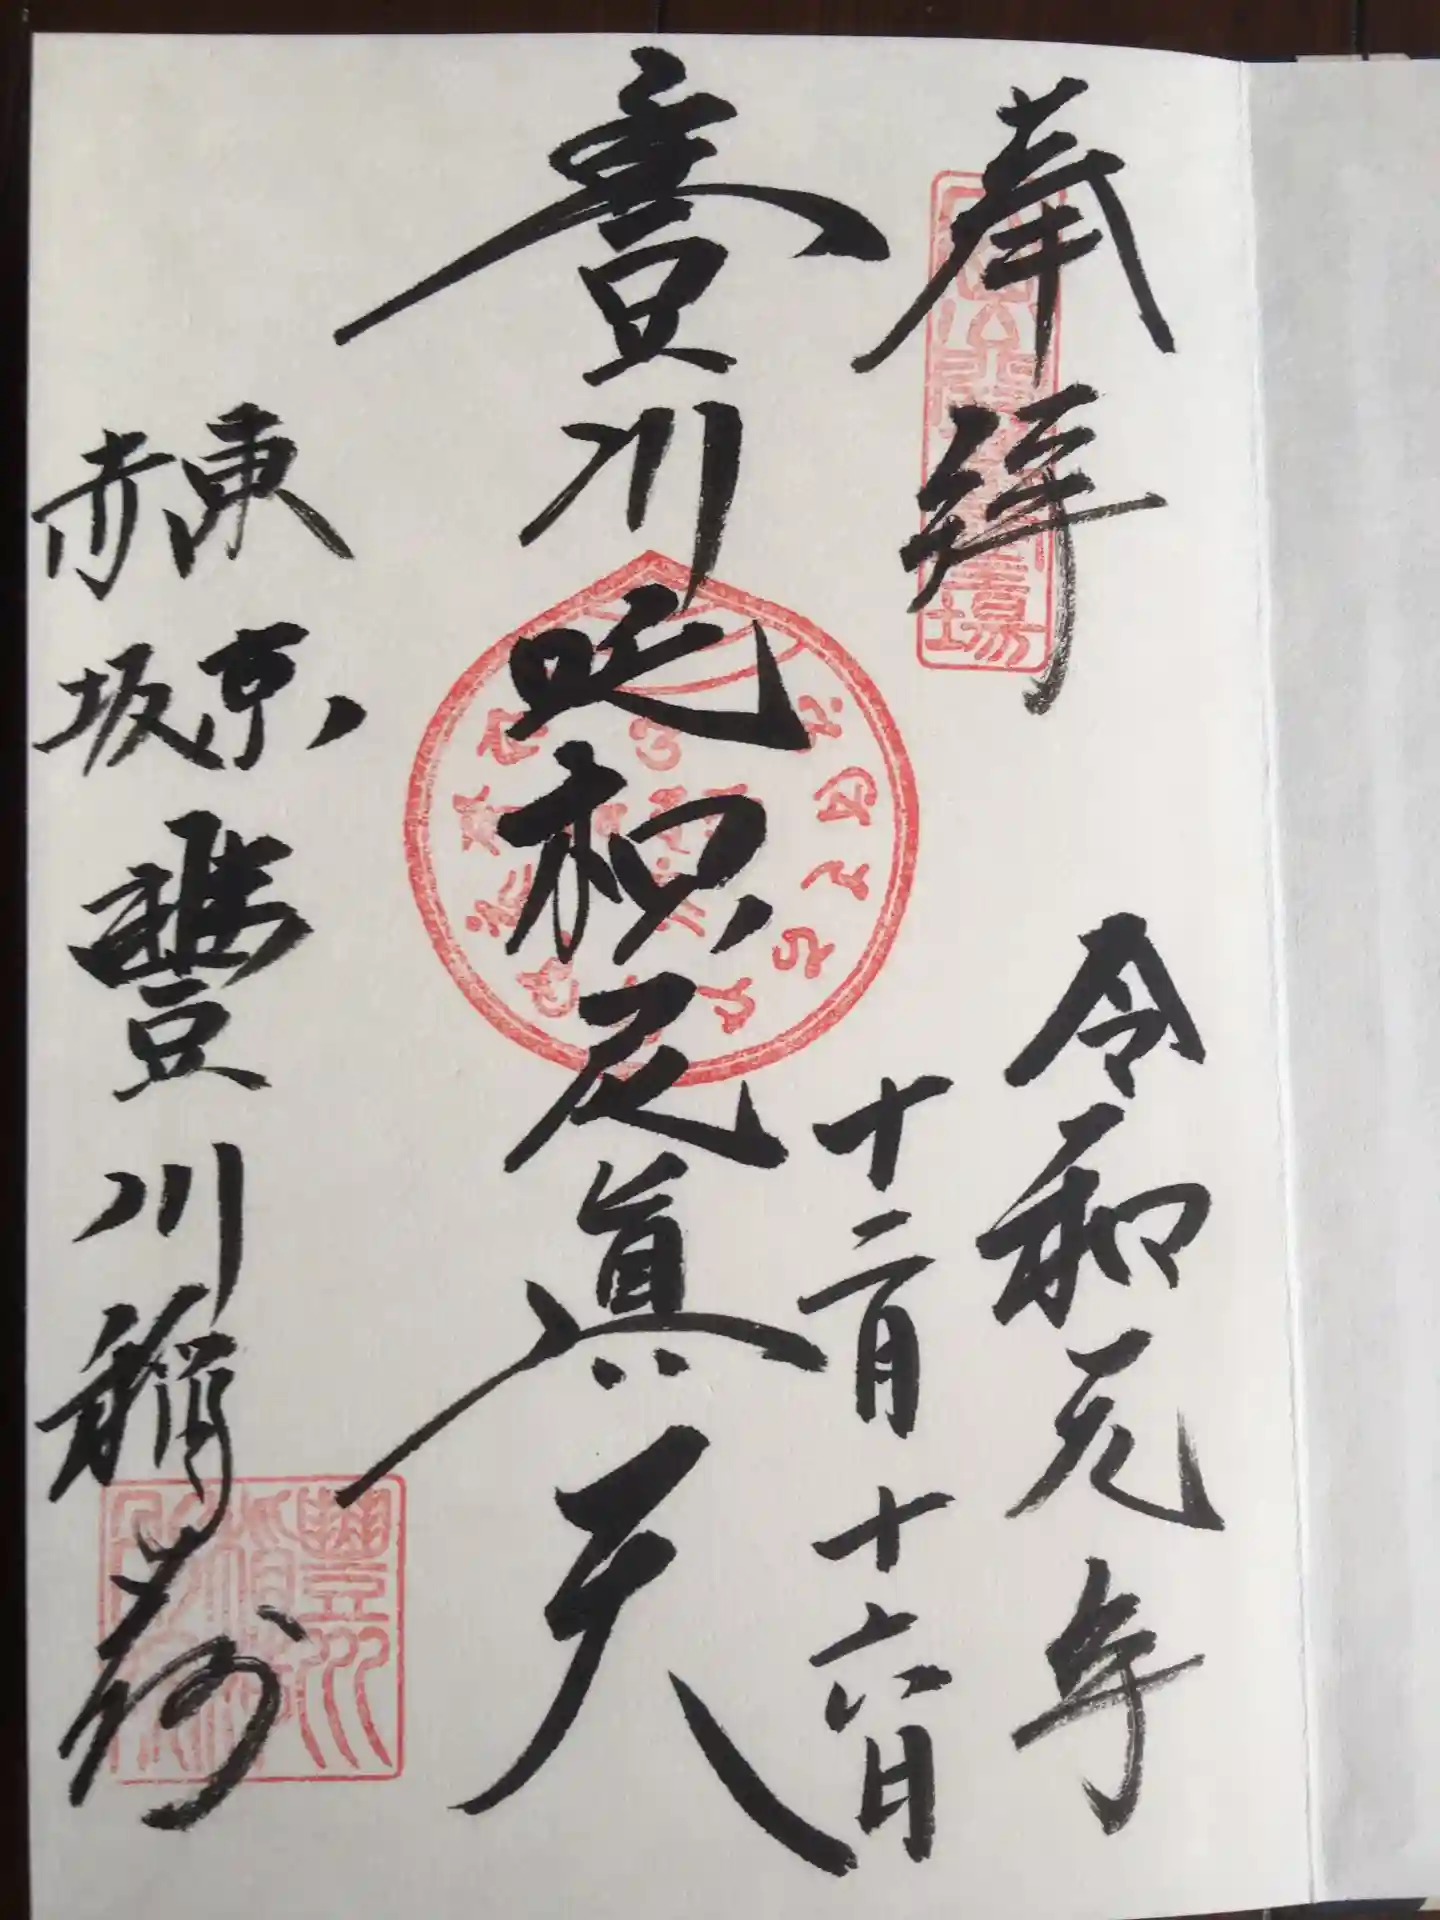 奉拝
令和元年
十二月十六日
豊川吒枳尼眞天
東京
赤坂
豐川稲荷